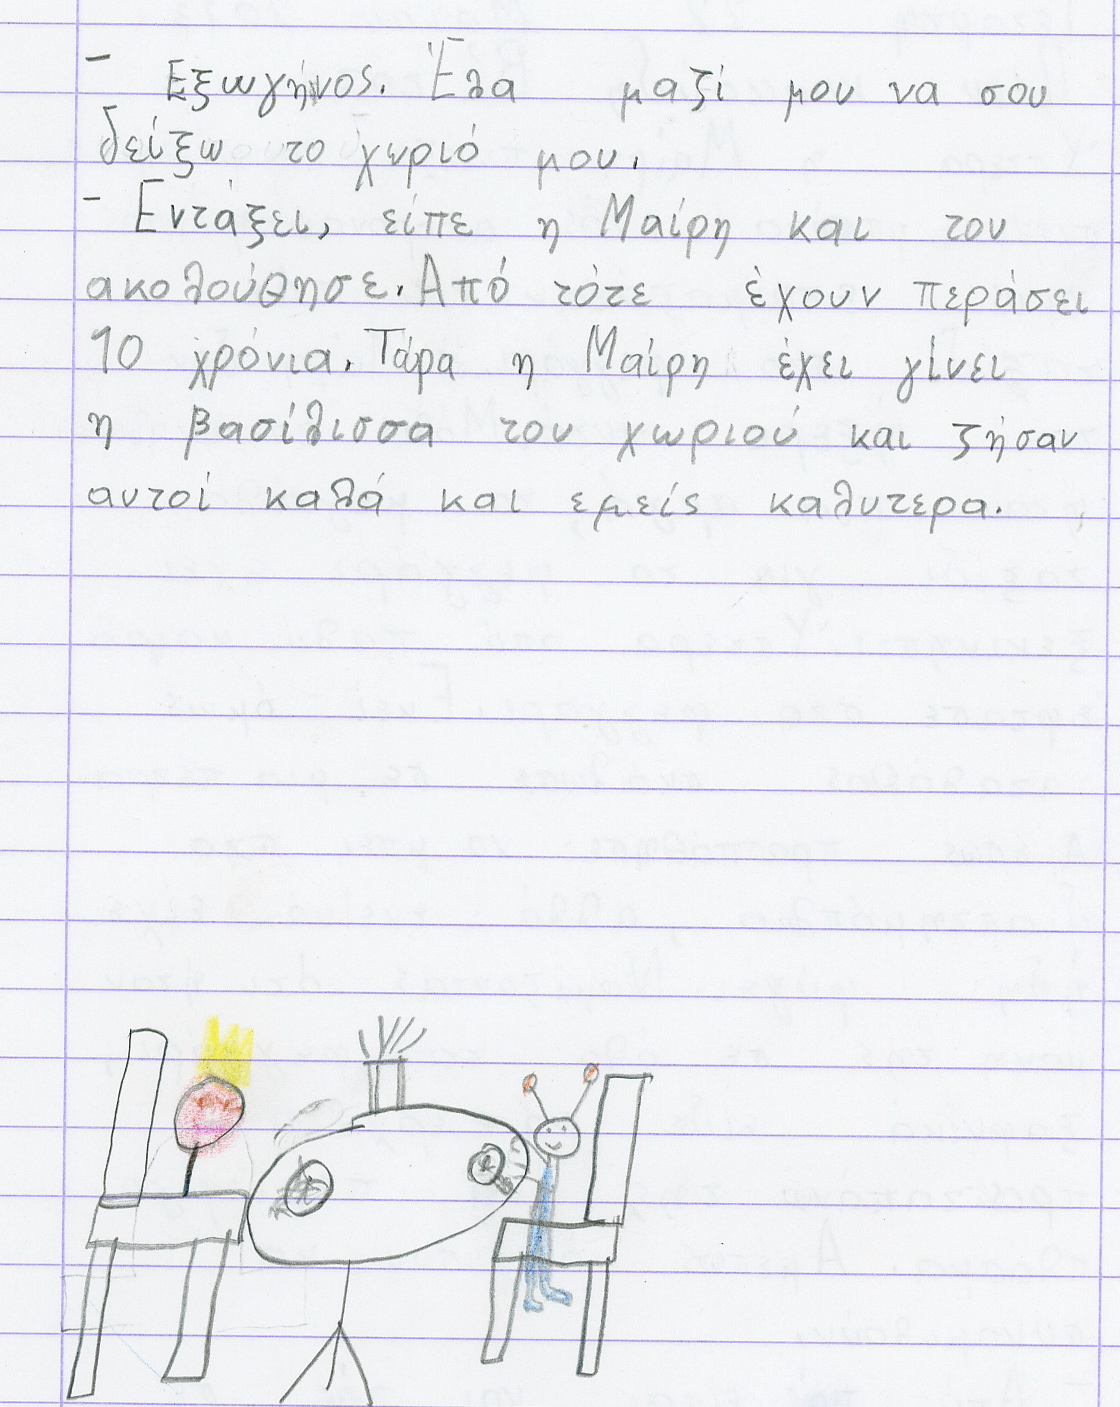 - Εξωγήινος. Έλα μαζί μου να σου
δείξω το χωριό μου.
- Εντάξει, είπε η Μαίρη και του
ακολούθησε. Από τότε έχουν περάσει
10 χρόνια. Τώρα η Μαίρη έχει γίνει
η βασίλισσα του χωριού και ζήσαν
αυτοί καλά και εμείς καλυτερα.